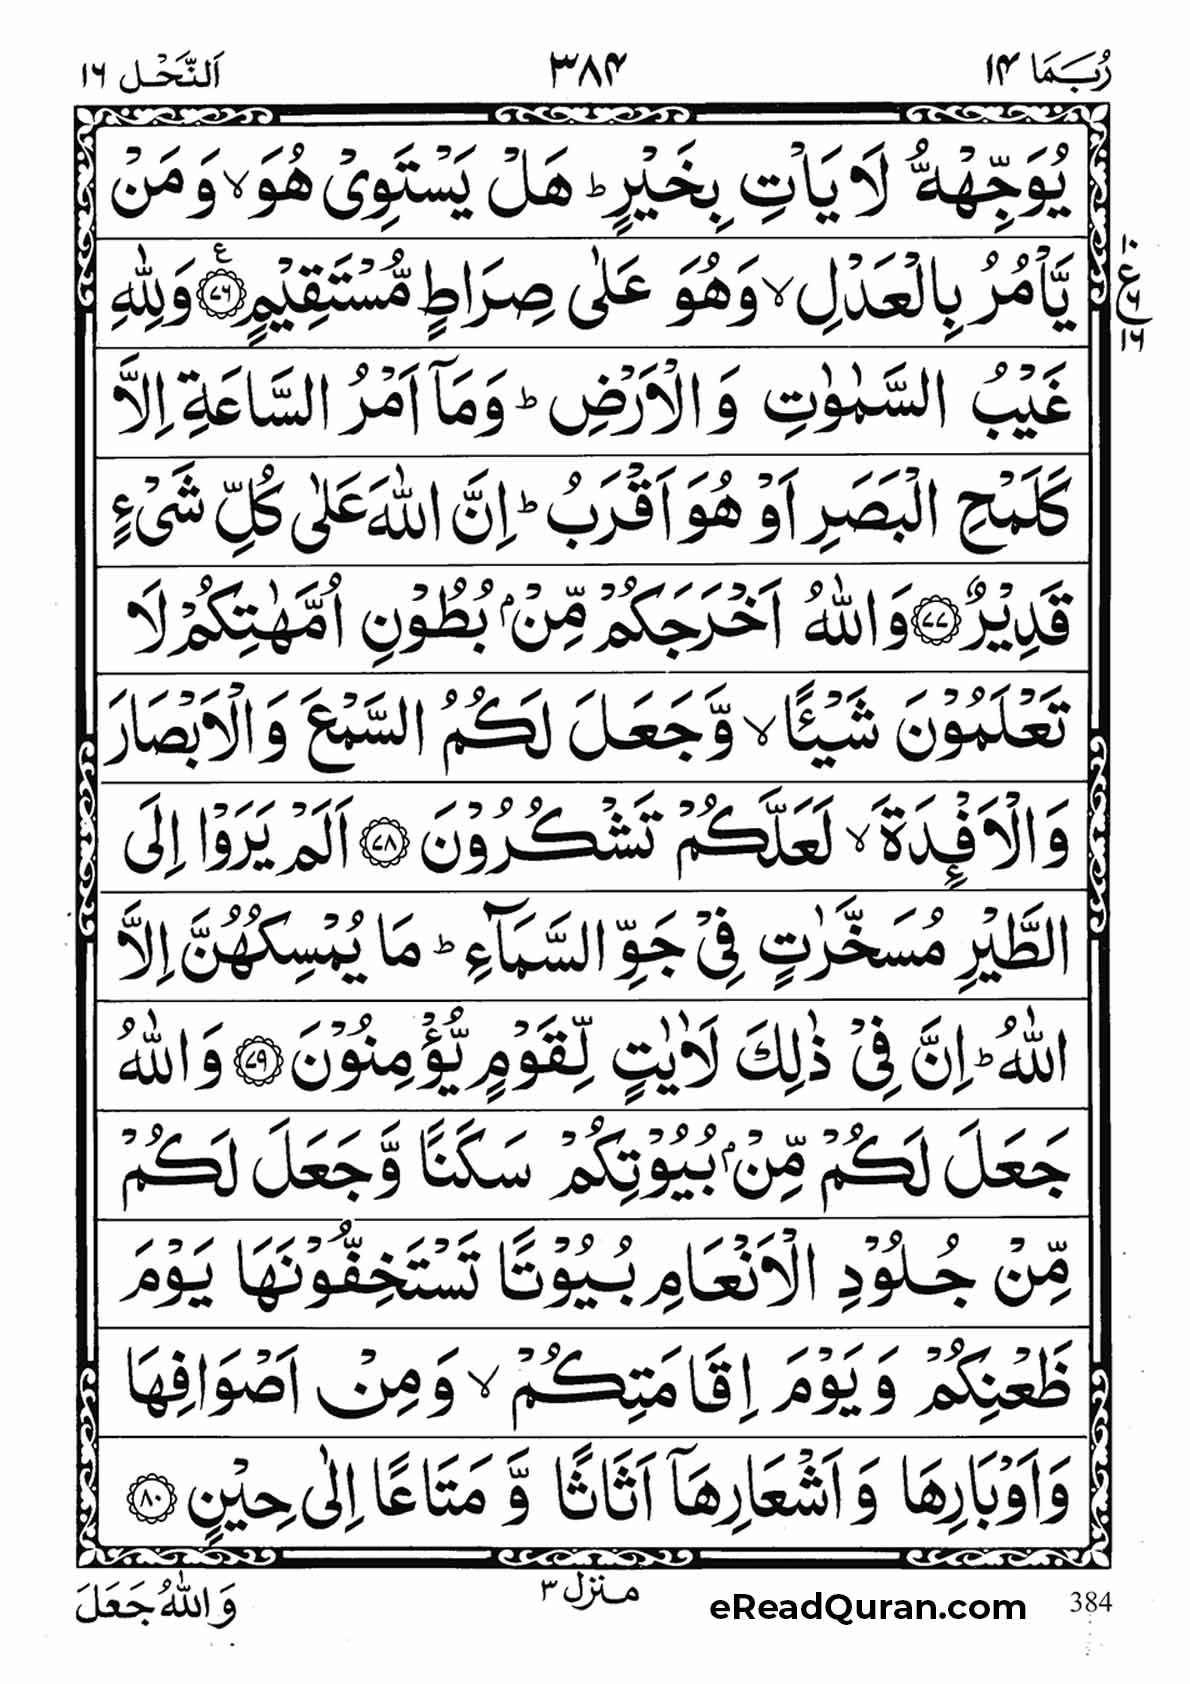 رُبَمَا ١٤
٣٨٤
اَلنَّحْل ١٦
يُوَجِّهْهُّ لَا يَاْتِ بِخَيْرٍؕ هَلْ يَسْتَوِيْ هُوَۙ وَ مَنْ
يَّاْمُرُ بِالْعَدْلِۙ وَهُوَ عَلٰى صِرَاطٍ مُّسْتَقِيْمٍ ﴿٧٦﴾ؑ وَ لِلّٰهِ
غَيْبُ السَّمٰوٰتِ وَ الْاَرْضِؕ وَ مَاۤ اَمْرُ السَّاعَةِ اِلَّا
كَلَمْحِ الْبَصَرِ اَوْ هُوَ اَقْرَبُؕ اِنَّ اللّٰهَ عَلٰى كُلِّ شَيْءٍ
قَدِيْرٌ ﴿٧٧﴾ وَ اللّٰهُ اَخْرَجَكُمْ مِّنْۢ بُطُوْنِ اُمَّهٰتِكُمْ لَا
تَعْلَمُوْنَ شَيْـًٔاۙ وَّ جَعَلَ لَكُمُ السَّمْعَ وَ الْاَبْصَارَ
وَ الْاَفْـِٕدَةَۙ لَعَلَّكُمْ تَشْكُرُوْنَ ﴿٧٨﴾ اَلَمْ يَرَوْا اِلَى
الطَّيْرِ مُسَخَّرٰتٍ فِيْ جَوِّ السَّمَآءِؕ مَا يُمْسِكُهُنَّ اِلَّا
اللّٰهُؕ اِنَّ فِيْ ذٰلِكَ لَاٰيٰتٍ لِّقَوْمٍ يُّؤْمِنُوْنَ ﴿٧٩﴾ وَ اللّٰهُ
جَعَلَ لَكُمْ مِّنْۢ بُيُوْتِكُمْ سَكَنًا وَّ جَعَلَ لَكُمْ
مِّنْ جُلُوْدِ الْاَنْعَامِ بُيُوْتًا تَسْتَخِفُّوْنَهَا يَوْمَ
ظَعْنِكُمْ وَ يَوْمَ اِقَامَتِكُمْۙ وَ مِنْ اَصْوَافِهَا
وَ اَوْبَارِهَا وَ اَشْعَارِهَاۤ اَثَاثًا وَّ مَتَاعًا اِلٰى حِيْنٍ ﴿٨٠﴾
١٠
ع
٦
١٦
384
eReadQuran.com
منزل ٣
وَ اللّٰهُ جَعَلَ